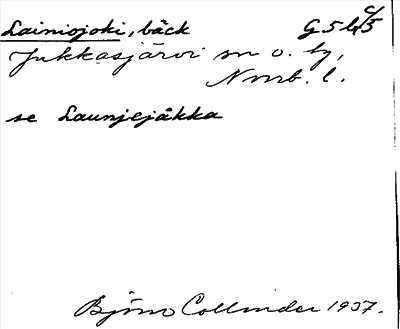 Lainiojoki, bäck
Jukkasjärvi sn o. by,
Norrb. l.
se Launjejåkka
Björn Collinder 1937.